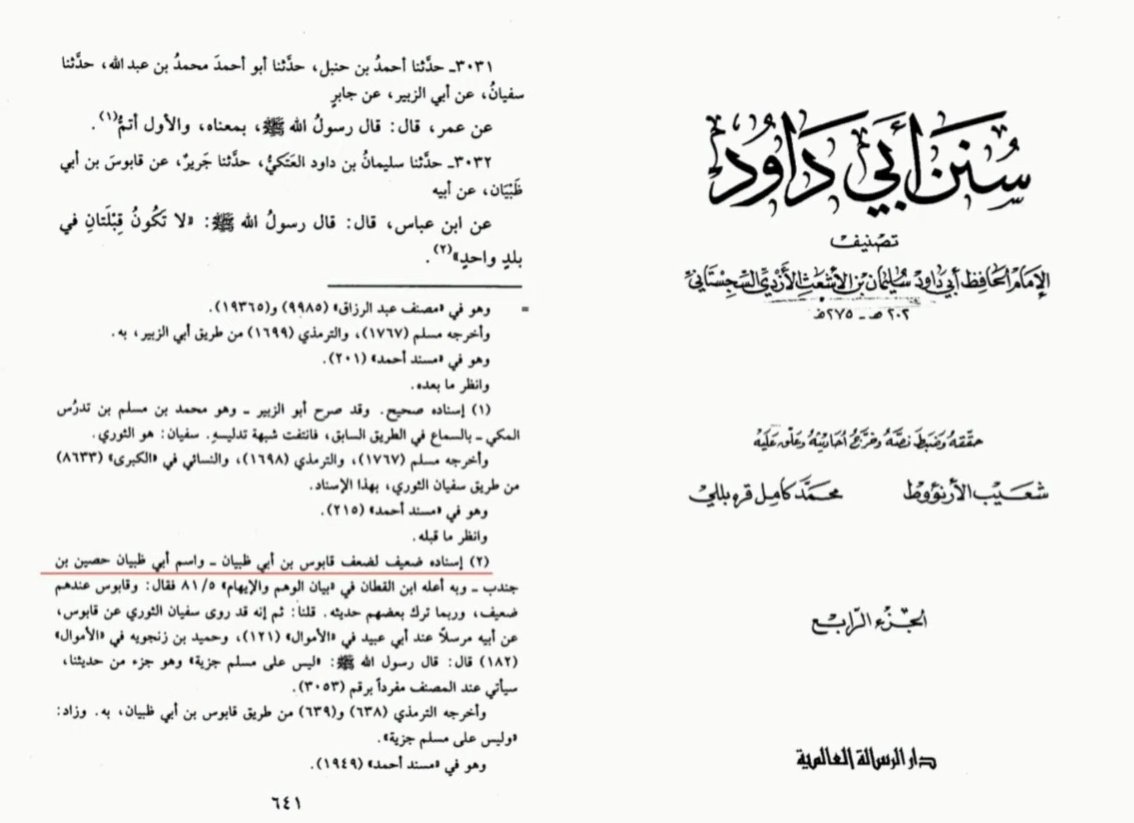 سُنَنُ أَبِي دَاوُدَ
تصنيف
الإمام الحافظ أبي داود سليمان بن الأشعث الأزدي السجستاني
٢٠٢ هـ - ٢٧٥ هـ
حققه وضبط نصه وخرج أحاديثه وعلق عليه
شعيب الأرنؤوط محمد كامل قره بللي
الجزء الرابع
دار الرسالة العالمية
٣٠٣١ـ حدَّثنا أحمدُ بن حنبل، حدَّثنا أبو أحمدَ محمدُ بن عبد الله، حدَّثنا
سفيانُ، عن أبي الزبير، عن جابرٍ
عن عمر، قال: قال رسولُ الله ﷺ، بمعناه، والأول أتمُّ(١).
٣٠٣٢ـ حدَّثنا سليمانُ بن داود العَتَكيُّ، حدَّثنا جَريرٌ، عن قابوسَ بن أبي
ظَبْيَان، عن أبيه
عن ابن عباس، قال: قال رسولُ الله ﷺ: «لا تَكُونُ قِبْلَتانِ في
بلدٍ واحدٍ»(٢).
= وهو في «مصنف عبد الرزاق» (٩٩٨٥) و(١٩٣٦٥).
وأخرجه مسلم (١٧٦٧)، والترمذي (١٦٩٩) من طريق أبي الزبير، به.
وهو في «مسند أحمد» (٢٠١).
وانظر ما بعده.
(١) إسناده صحيح. وقد صرح أبو الزبير ـ وهو محمد بن مسلم بن تدرُس
المكي ـ بالسماع في الطريق السابق، فانتفت شبهة تدليسهِ. سفيان: هو الثوري.
وأخرجه مسلم (١٧٦٧)، والترمذي (١٦٩٨)، والنسائي في «الكبرى» (٨٦٣٣)
من طريق سفيان الثوري، بهذا الإسناد.
وهو في «مسند أحمد» (٢١٥).
وانظر ما قبله.
(٢) إسناده ضعيف لضعف قابوس بن أبي ظبيان ـ واسم أبي ظبيان حصين بن
جندب ـ وبه أعله ابن القطان في «بيان الوهم والإيهام» ٨١/٥ فقال: وقابوس عندهم
ضعيف، وربما ترك بعضهم حديثه. قلنا: ثم إنه قد روى سفيان الثوري عن قابوس،
عن أبيه مرسلاً عند أبي عبيد في «الأموال» (١٢١)، وحميد بن زنجويه في «الأموال»
(١٨٢) قال: قال رسول الله ﷺ: «ليس على مسلم جزية» وهو جزء من حديثنا،
سيأتي عند المصنف مفرداً برقم (٣٠٥٣).
وأخرجه الترمذي (٦٣٨) و(٦٣٩) من طريق قابوس بن أبي ظبيان، به. وزاد:
«وليس على مسلم جزية».
وهو في «مسند أحمد» (١٩٤٩).
٦٤١